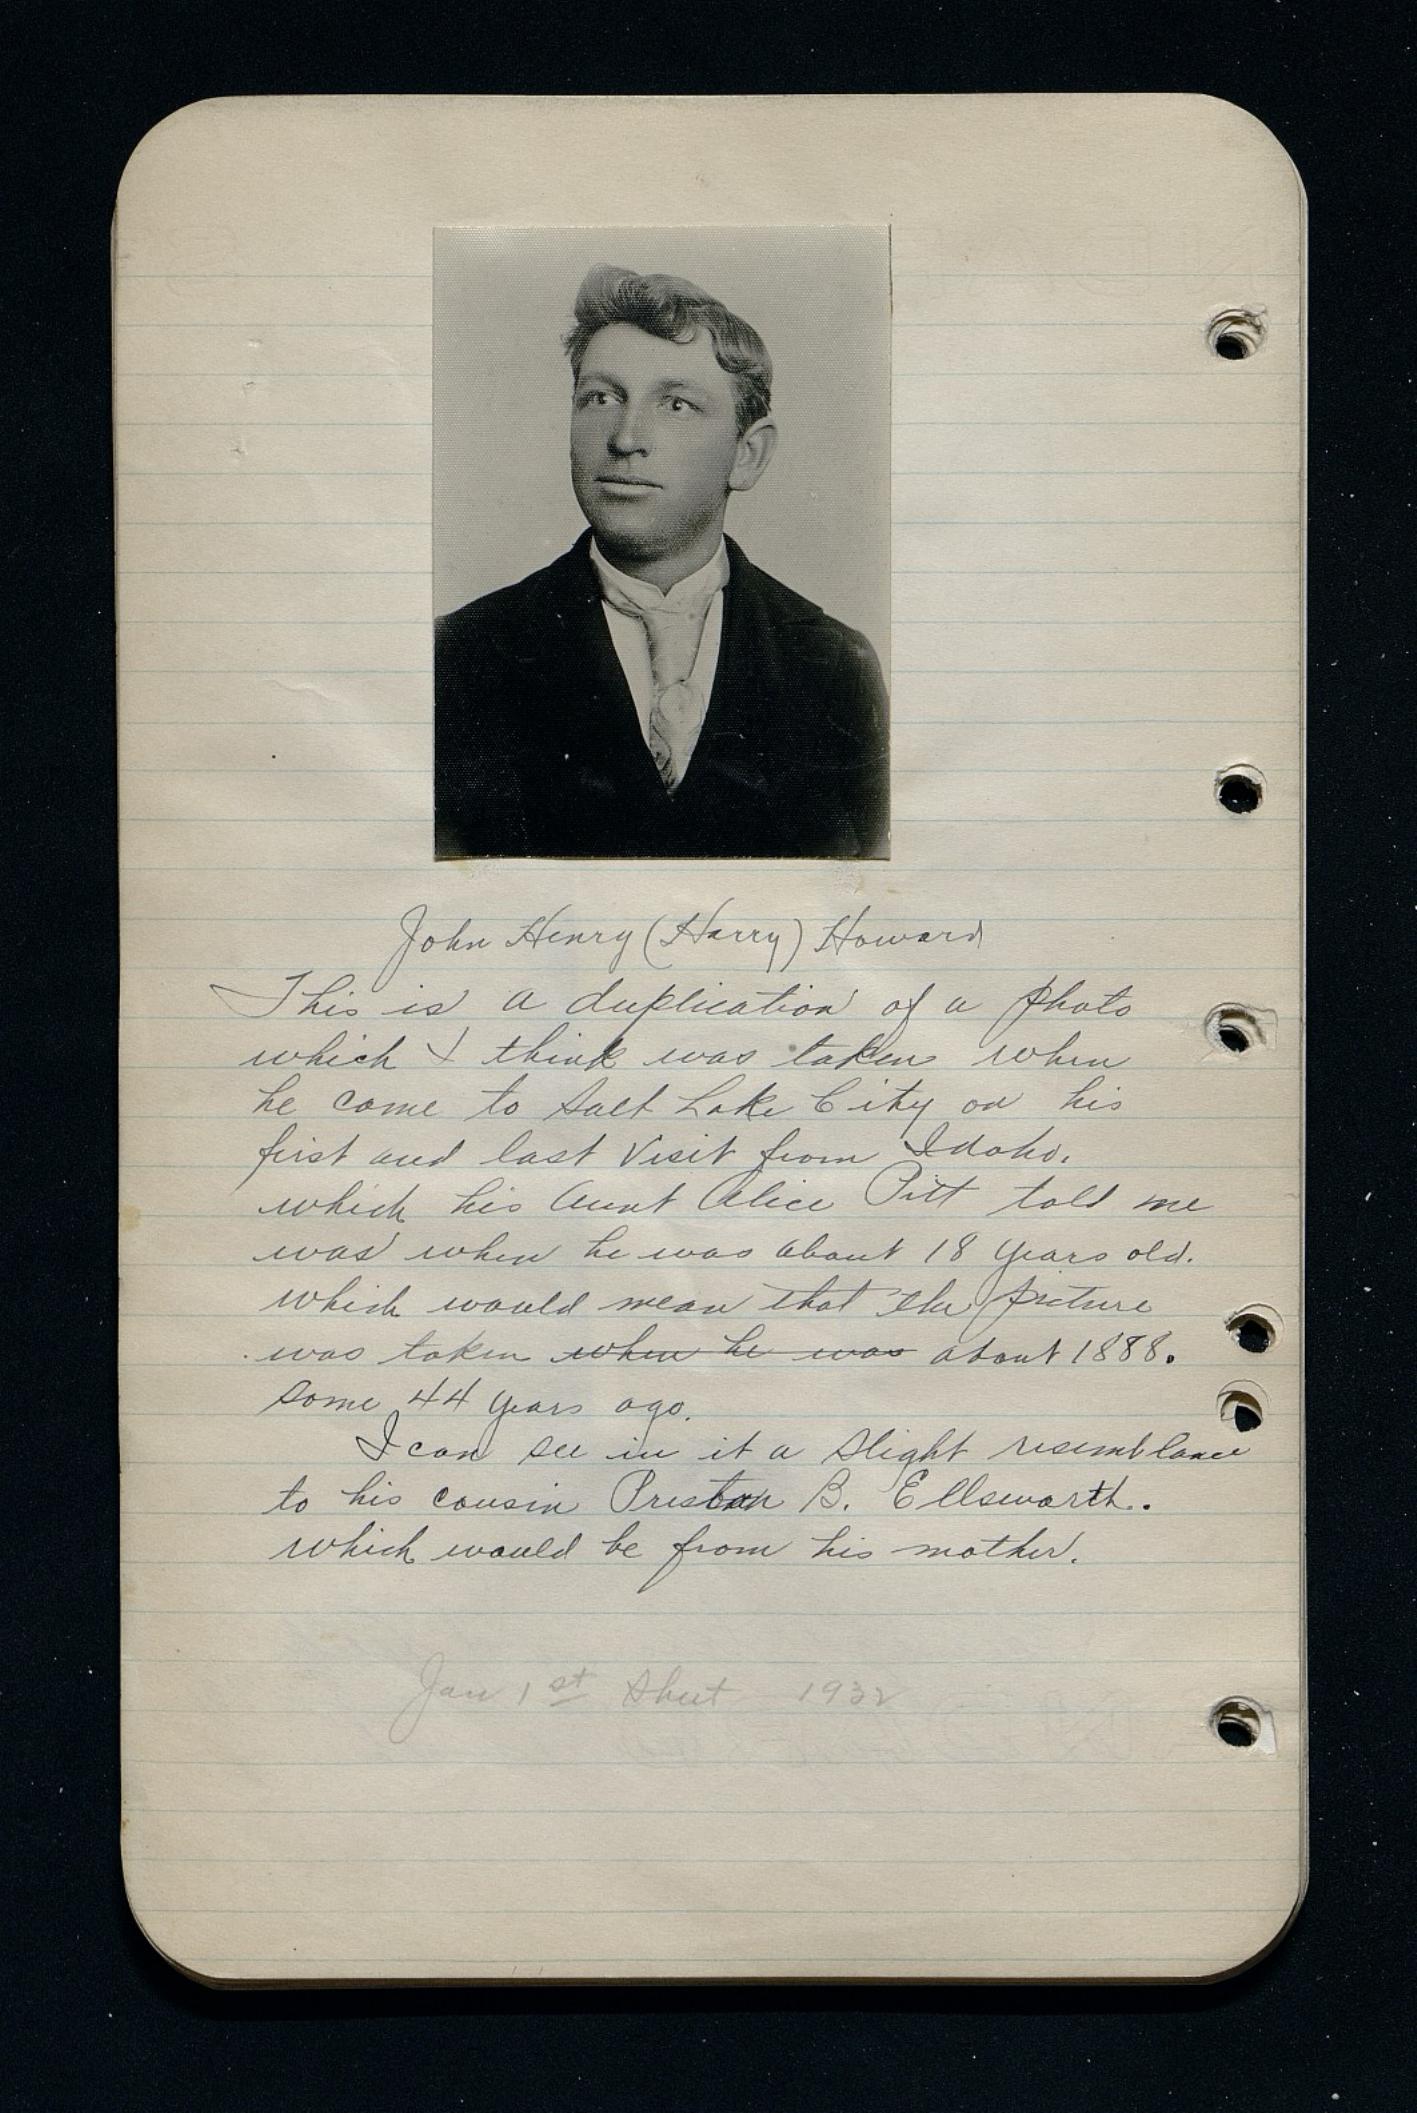 John Henry (Harry) Howard
This is a duplication of a photo
which I think was taken when
he came to Salt Lake City on his
first and last visit from Idaho.
which his Aunt Alice Pitt told me
was when he was about 18 years old.
which would mean that the picture
was taken when he was about 1888.
some 44 years ago.
I can see in it a slight resemblance
to his cousin Preston B. Ellsworth.
which would be from his mother.
Jan 1st Sheet 1932